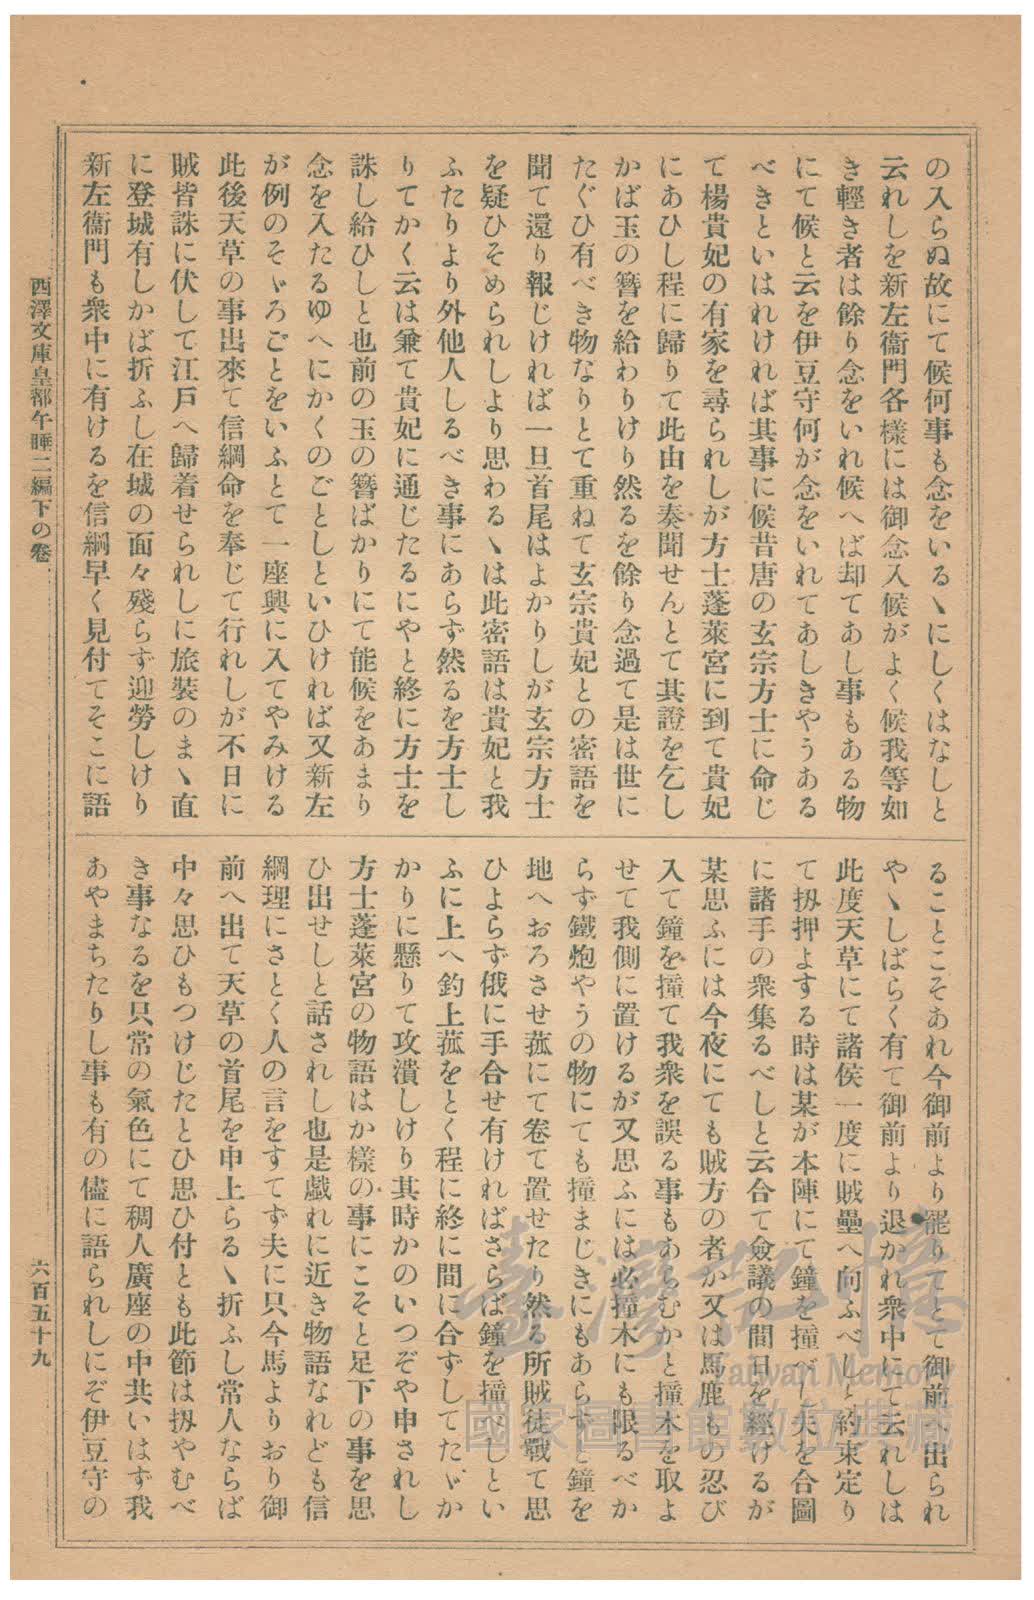 の入らぬ故にて候何事も念をいるゝにしくはなしと
云れしを新左衞門各樣には御念入候がよく候我等如
き輕き者は餘り念をいれ候へば却てあし事もある物
にて候と云を伊豆守何が念をいれてあしきやうある
べきといはれければ其事に候昔唐の玄宗方士に命じ
て楊貴妃の有家を尋られしが方士蓬萊宮に到て貴妃
にあひし程に歸りて此由を奏聞せんとて其證を乞し
かば玉の簪を給わりけり然るを餘り念過て是は世に
たぐひ有べき物なりとて重ねて玄宗貴妃との密語を
聞て還り報じければ一旦首尾はよかりしが玄宗方士
を疑ひそめられしより思わるゝは此密語は貴妃と我
ふたりより外他人しるべき事にあらず然るを方士し
りてかく云は兼て貴妃に通じたるにやと終に方士を
誅し給ひしと也前の玉の簪ばかりにて能候をあまり
念を入たるゆへにかくのごとしといひければ又新左
が例のそゞろごとをいふとて一座興に入てやみける
此後天草の事出來て信綱命を奉じて行れしが不日に
賊皆誅に伏して江戸へ歸着せられしに旅裝のまゝ直
に登城有しかば折ふし在城の面々殘らず迎勞しけり
新左衞門も衆中に有けるを信綱早く見付てそこに語
ることこそあれ今御前より罷りてとて御前へ出られ
やゝしばらく有て御前より退かれ衆中にて云れしは
此度天草にて諸侯一度に賊壘へ向ふべしと約束定り
て扨押よする時は某が本陣にて鐘を撞べし夫を合圖
に諸手の衆集るべしと云合て僉議の間日を經けるが
某思ふには今夜にても賊方の者か又は馬鹿もの忍び
入て鐘を撞て我衆を誤る事もあらむかと撞木を取よ
せて我側に置けるが又思ふには必撞木にも限るべか
らず鐵炮やうの物にても撞まじきにもあらずと鐘を
地へおろさせ菰にて卷て置せたり然る所賊徒戰て思
ひよらず俄に手合せ有ければさらば鐘を撞べしとい
ふに上へ釣上菰をとく程に終に間に合ずしてたゞか
かりに懸りて攻潰しけり其時かのいつぞや申されし
方士蓬萊宮の物語はか樣の事にこそと足下の事を思
ひ出せしと話されし也是戲れに近き物語なれども信
綱理にさとく人の言をすてず夫に只今馬よりおり御
前へ出て天草の首尾を申上らるゝ折ふし常人ならば
中々思ひもつけじたとひ思ひ付とも此節は扨やむべ
き事なるを只常の氣色にて稠人廣座の中共いはず我
あやまちたりし事も有の儘に語られしにぞ伊豆守の
西澤文庫皇都午睡二編下の卷
六百五十九
臺灣記憶
Taiwan Memory
國家圖書館數位典藏